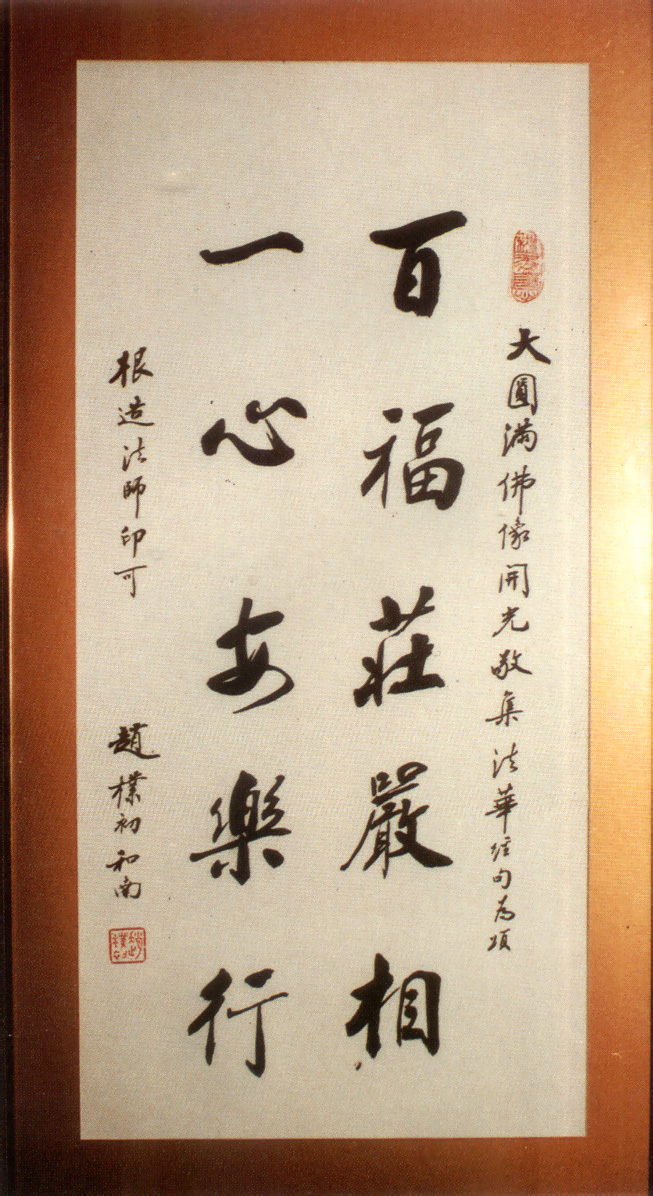 大圓滿佛像開光敬集法華经句为頌
百福莊嚴相
一心安樂行
根造法師印可
趙樸初和南